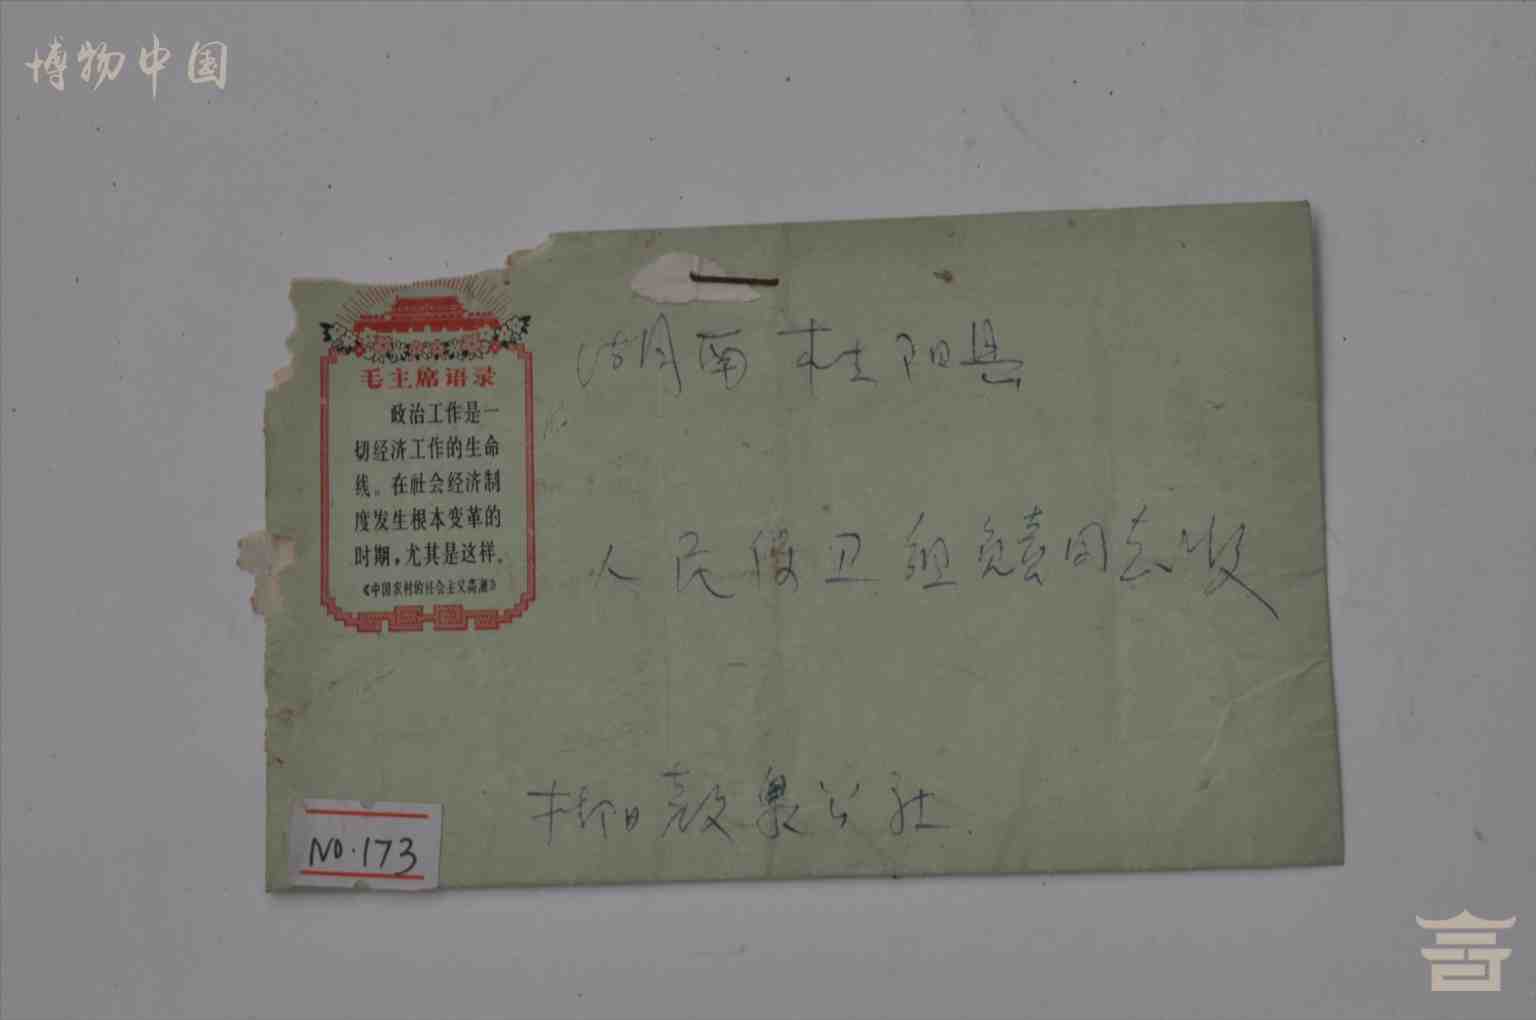 博物中国
毛主席语录
政治工作是一
切经济工作的生命
线。在社会经济制
度发生根本变革的
时期，尤其是这样。
《中国农村的社会主义高潮》
湖南桂阳县
人民保卫组负责同志收
敖泉公社.
NO.173